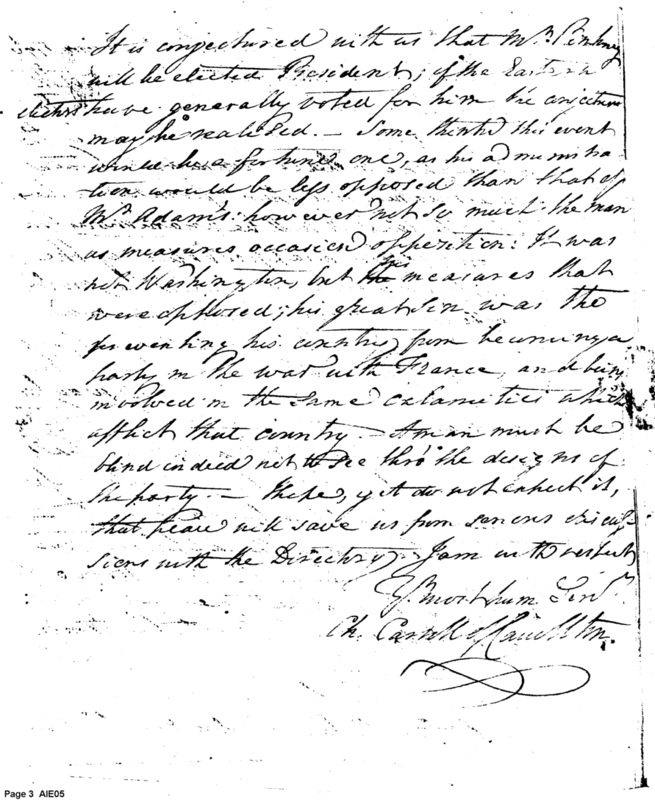 It is conjectured with us that Mr. Pinkney
will be elected President; if the Eastern
electors have generally voted for him the conjecture
may be realised. – Some think this event
would be a fortunate one, as his administra
tion would be less opposed than that of
Mr. Adams: however not so much the man
as measures occasion opposition: It was
not Washington, but his measures that
were opposed; his great sin was the
preventing his country from becoming a
party in the war with France, and being
involved in the same calamities which
afflict that country. – A man must be
blind indeed not to see thro' the designs of
the party. – I hope, yet do not expect it,
that peace will save us from serious
sions with the Directory. I am with respect
Yr. most hum. Servt.
Ch. Carroll of Carrollton.
Page 3 AIE05